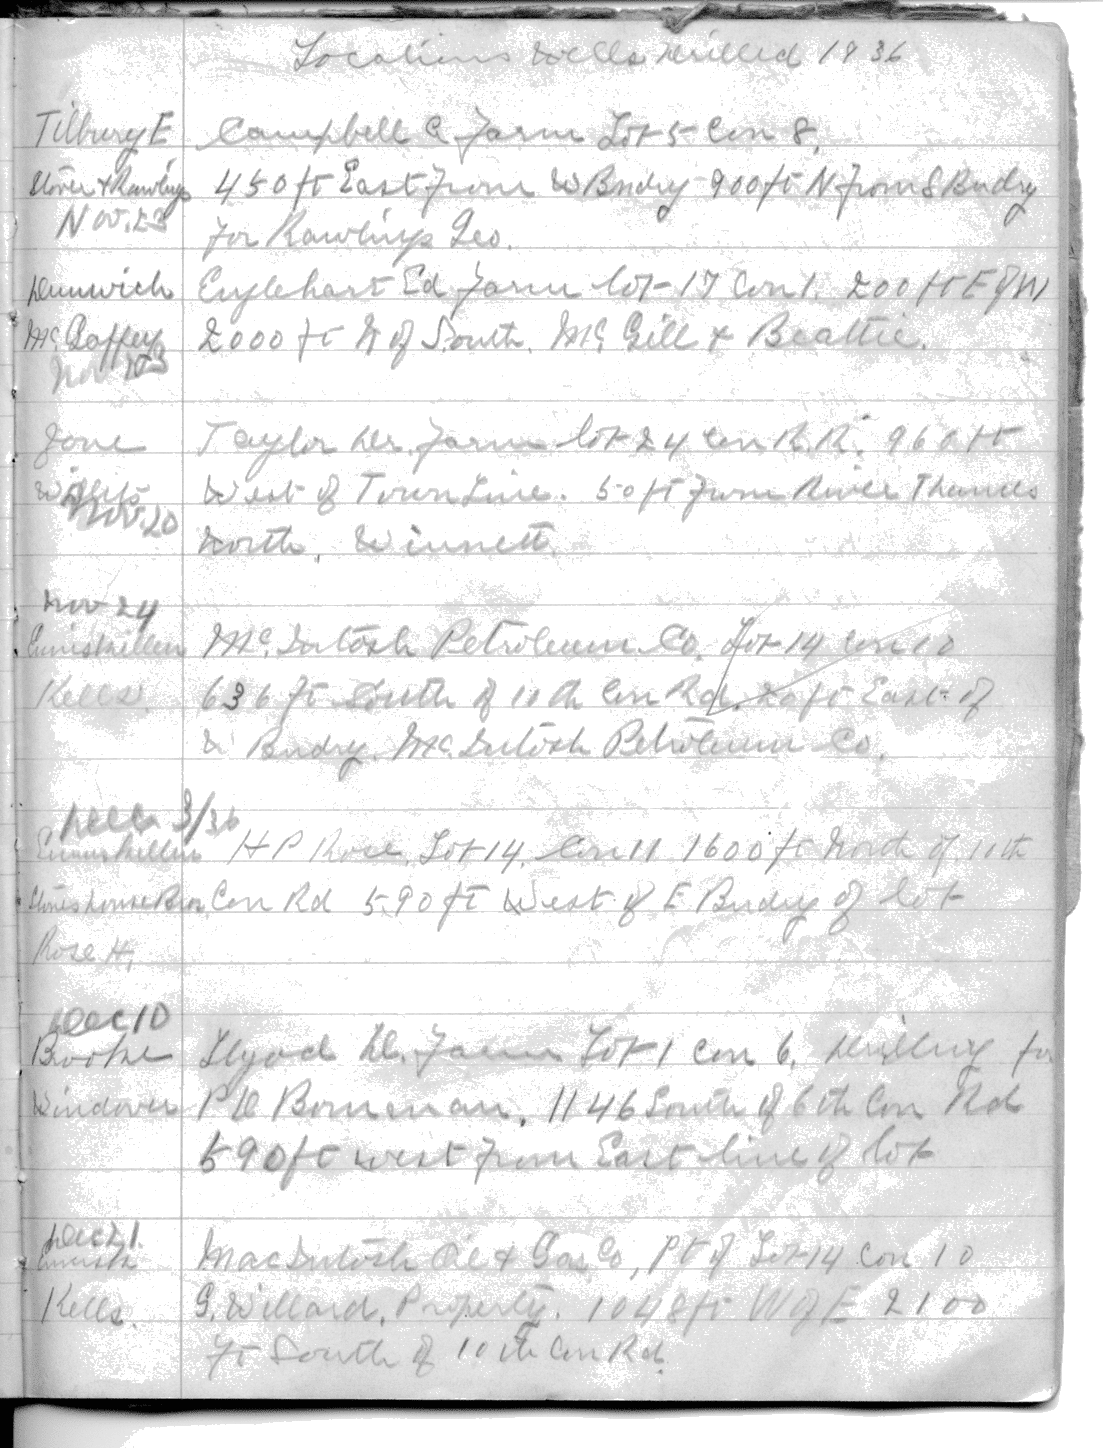 Locations Wells Drilled 1936
Tilbury E Campbell C Farm Lot 5 Con 8.
Stover & Rawlings 450 ft East from W Bndry 900 ft N from S Bndry
Nov. 23
for Rawlings Geo.
Dunwich Englehart Ed Farm lot 17 Con 1. 200 ft E of W
McCaffery 2000 ft N of South. McGill & Beattie.
Nov
Zone Taylor Dr. Farm lot 24 Con R.R. 960 ft
West of Town Line. 50 ft from River Thames
Nov. 20
North. Winnett.
Nov 24
Enniskillen McIntosh Petroleum Co. Lot 14 Con 10
Kells. 636 ft South of 11th Con Rd. 20 ft East of
W Bndry. McIntosh Petroleum Co.
Dec 3/36
Enniskillen H P Rose. Lot 14. Con 11 1600 ft North of 10th
Stoneshouse Bros. Con Rd 590 ft West of E Bndry of lot
Rose H.
Dec 10
Brooke Lloyd D. Farm Lot 1 Con 6. Drilling for
Windover P D Bowman. 1146 South of 6th Con Rd
590 ft west from East line of lot
Dec 21.
Ennisk MacIntosh Oil & Gas Co, Pt of Lot 14 Con 10
Kells. G. Willard. Property. 1048 ft W of E 2100
ft South of 10th Con Rd.